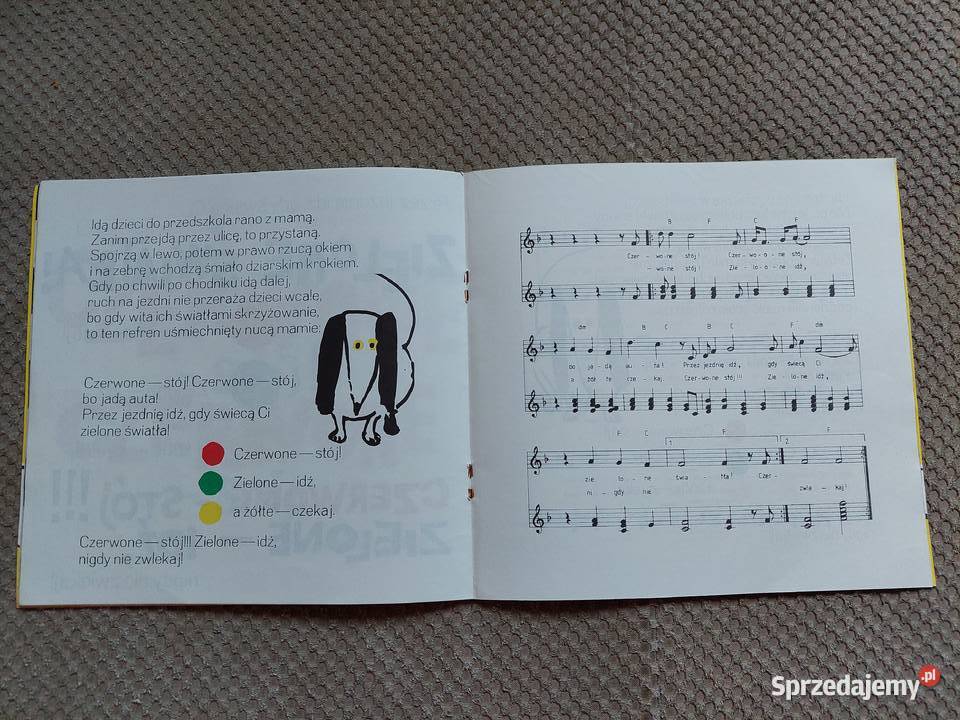 Idą dzieci do przedszkola rano z mamą.
Zanim przejdą przez ulicę, to przystaną.
Spojrzą w lewo, potem w prawo rzucą okiem
i na zebrę wchodzą śmiało dziarskim krokiem.
Gdy po chwili po chodniku idą dalej,
ruch na jezdni nie przeraża dzieci wcale,
bo gdy wita ich światłami skrzyżowanie,
to ten refren uśmiechnięty nucą mamie:
Czerwone — stój! Czerwone — stój,
bo jadą auta!
Przez jezdnię idź, gdy świecą Ci
zielone światła!
Czerwone — stój!
Zielone — idź,
a żółte — czekaj.
Czerwone — stój!!! Zielone — idź,
nigdy nie zwlekaj!
B F C F
Czer - wo - ne stój! Czer - wo - o - ne stój,
- wo - ne stój! Zie - lo - o - ne idź,
dm B C B C F dm
bo ja - dą au - ta! Przez jezdnię idź, gdy świecą Ci
a żół - te cze - kaj. Czer - wo - ne stój!!! Zie - lo - ne idź,
F C 1 F 2 F
zie - lo - ne świa - tła! Czer -
ni - gdy nie zwle - kaj!
Sprzedajemy.pl